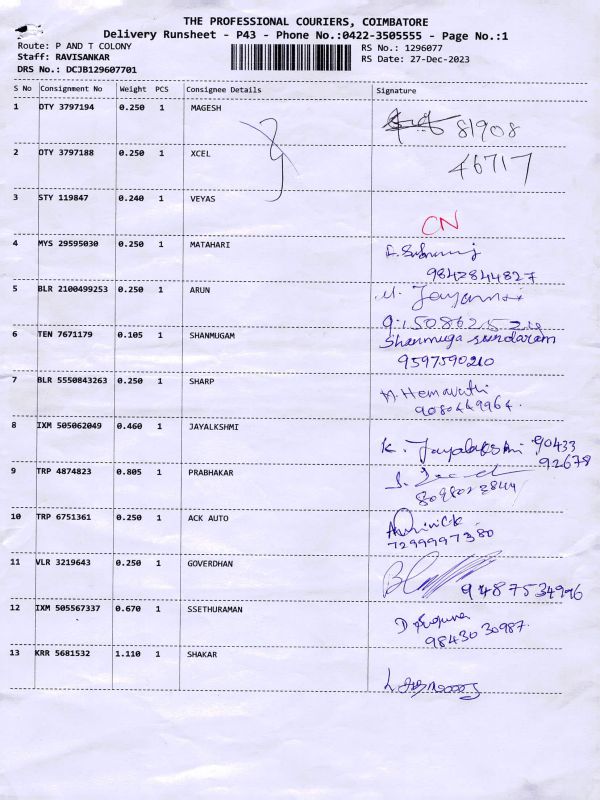 THE PROFESSIONAL COURIERS, COIMBATORE
Delivery Runsheet - P43 - Phone No.:0422-3505555 - Page No.:1
Route: P AND T COLONY
RS No.: 1296077
Staff: RAVISANKAR
RS Date: 27-Dec-2023
DRS No.: DCJB129607701
S No Consignment No Weight PCS Consignee Details Signature
1 DTY 3797194 0.250 1 MAGESH 81908
2 DTY 3797188 0.250 1 XCEL 46717
3 STY 119847 0.240 1 VEYAS CN
4 MYS 29595030 0.250 1 MATAHARI
9842844827
5 BLR 2100499253 0.250 1 ARUN
6 TEN 7671179 0.105 1 SHANMUGAM Shanmuga sundaram
9597590210
7 BLR 5550843263 0.250 1 SHARP Hemavathi
9080449964.
8 IXM 505062049 0.460 1 JAYALKSHMI K. Jayalakshmi 90433
92678
9 TRP 4874823 0.805 1 PRABHAKAR
10 TRP 6751361 0.250 1 ACK AUTO
7299997380
11 VLR 3219643 0.250 1 GOVERDHAN 9487534996
12 IXM 505567337 0.670 1 SSETHURAMAN
98430 30987.
13 KRR 5681532 1.110 1 SHAKAR